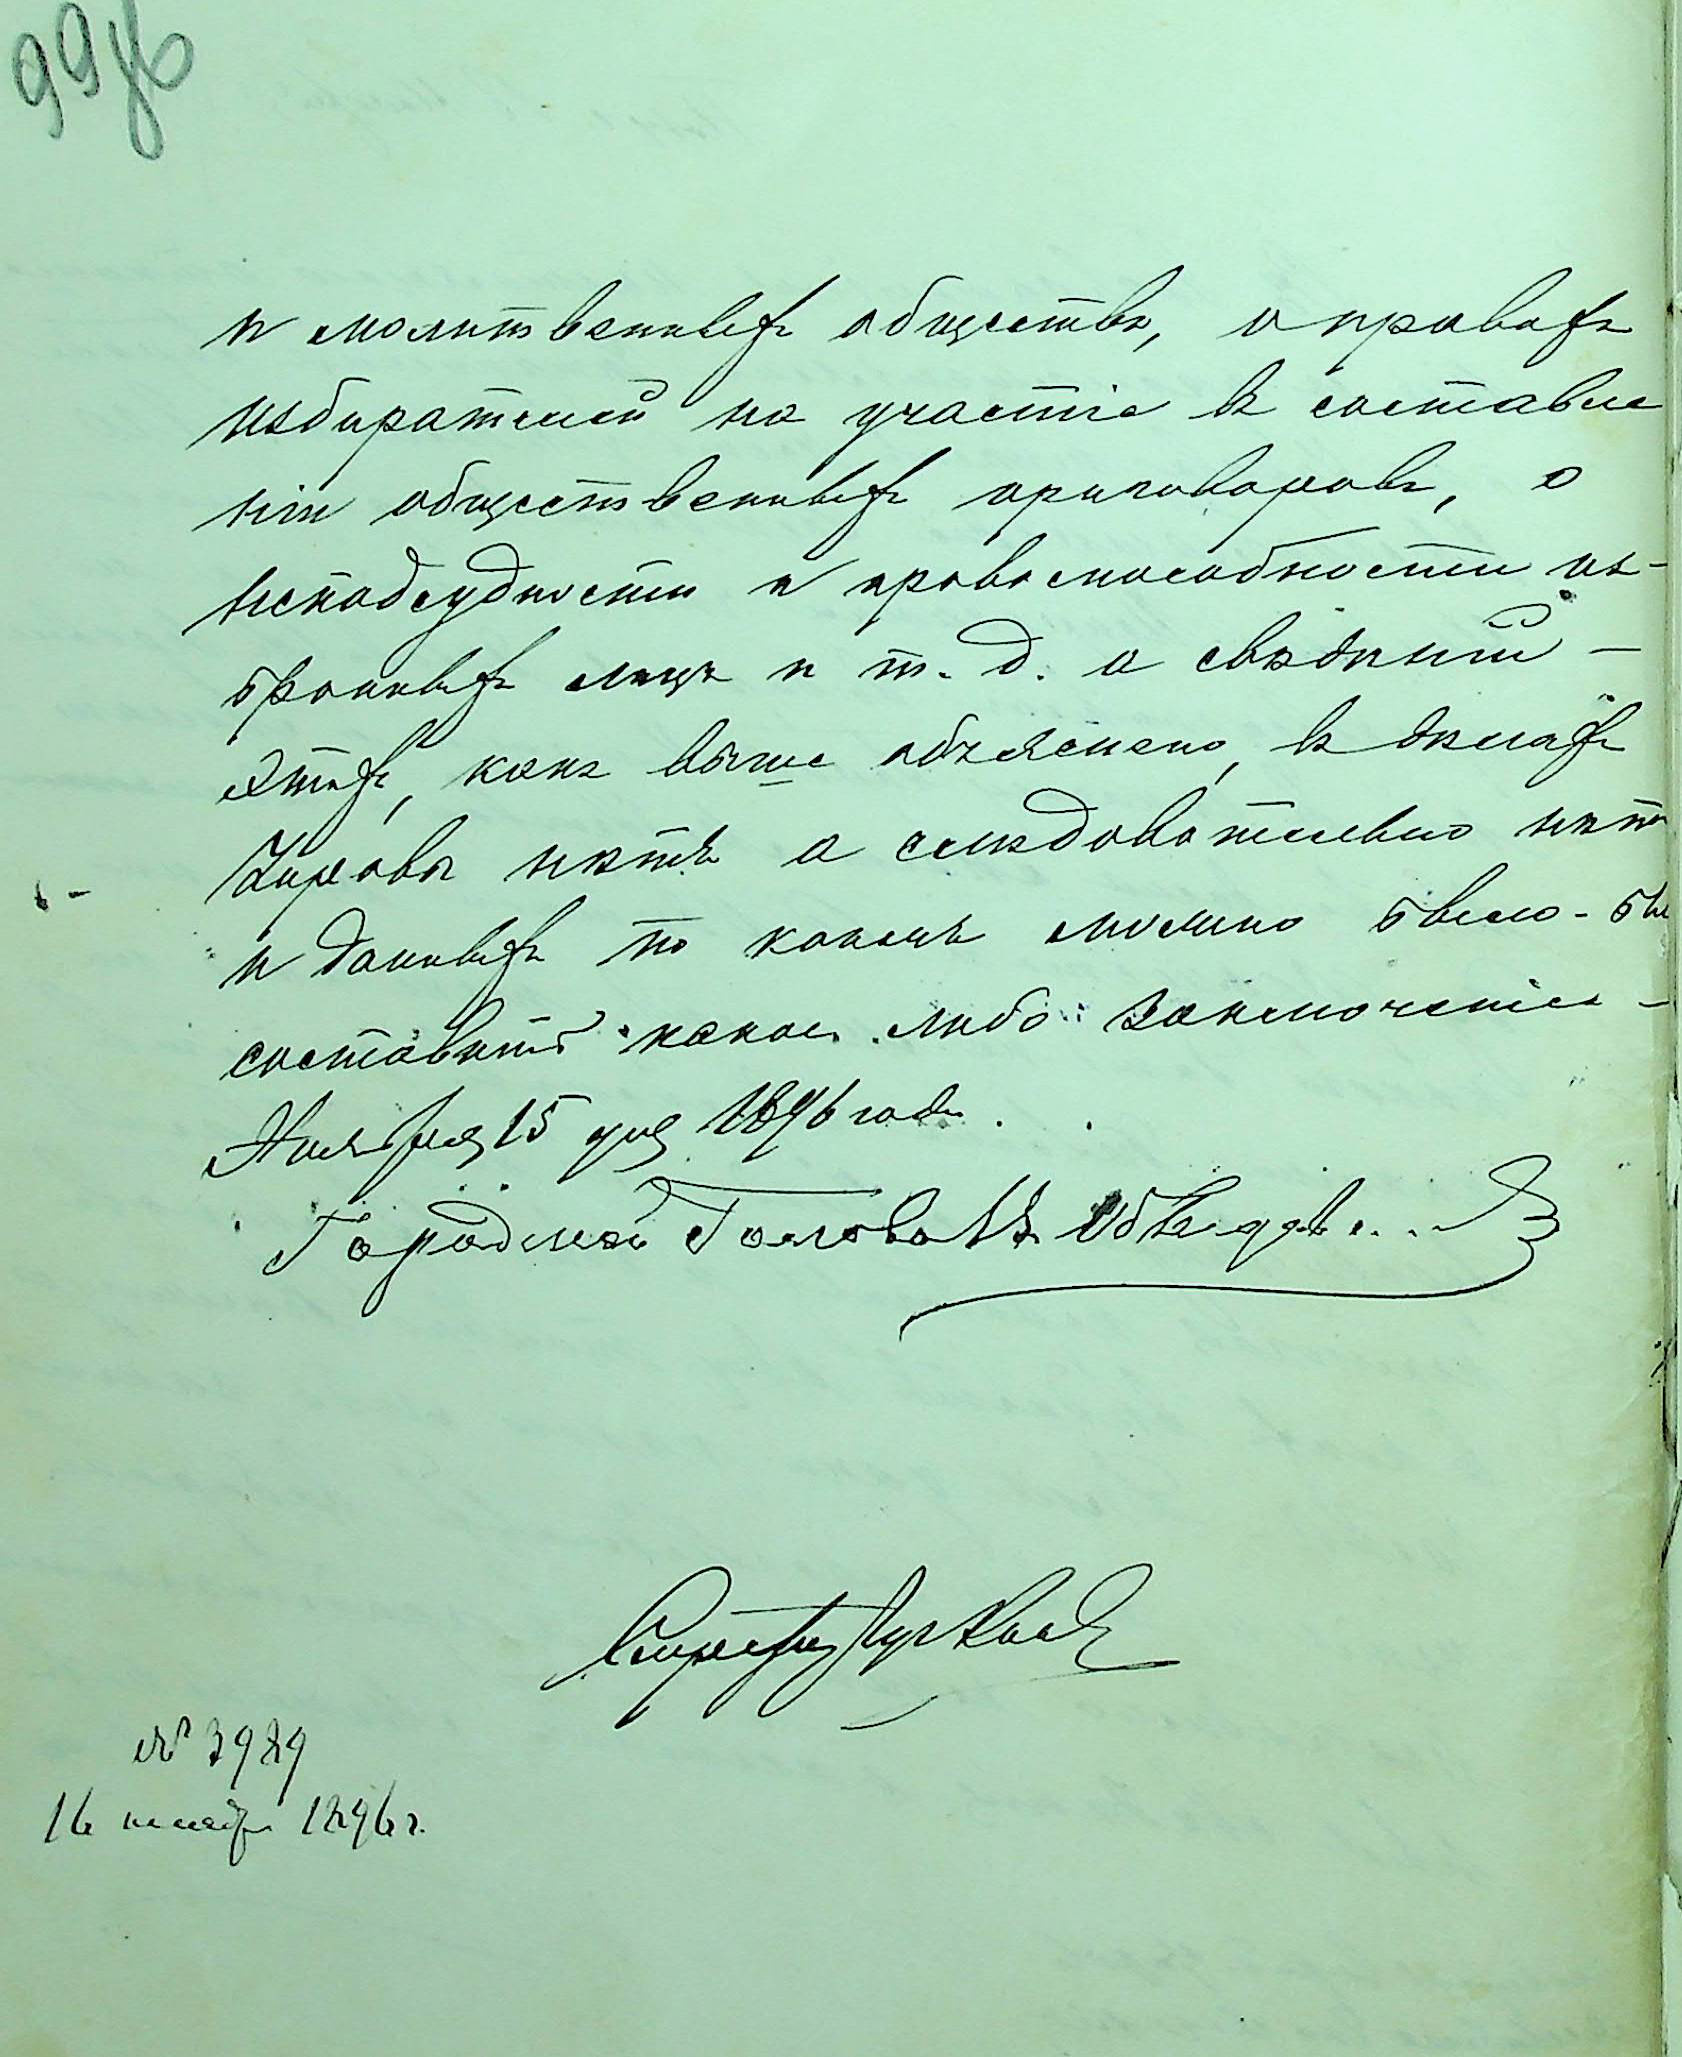 99об
и молитвенныхъ обществъ, о правахъ
избирателей на участіе въ составле
ніи общественныхъ приговоровъ, о
неподсудности и правоспособности из-
бранныхъ лицъ и т. д. а свѣдѣній -
этихъ, какъ выше объяснено, въ дѣлахъ
Управы нѣтъ а слѣдовательно нѣтъ
и данныхъ по коимъ можно было-бы
составить какое либо заключеніе -
Ноября 15 дня 1896 года.
Городской Голова
Секретарь
№ 3989
16 ноября 1896 г.